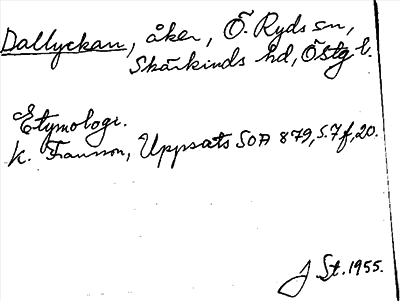 Dallyckan, åker, Ö. Ryds sn,
Skärkinds hd, Östg l.
Etymologi.
K. Fransson, Uppsats SOA 879, s. 7 f, 20.
J St. 1955.